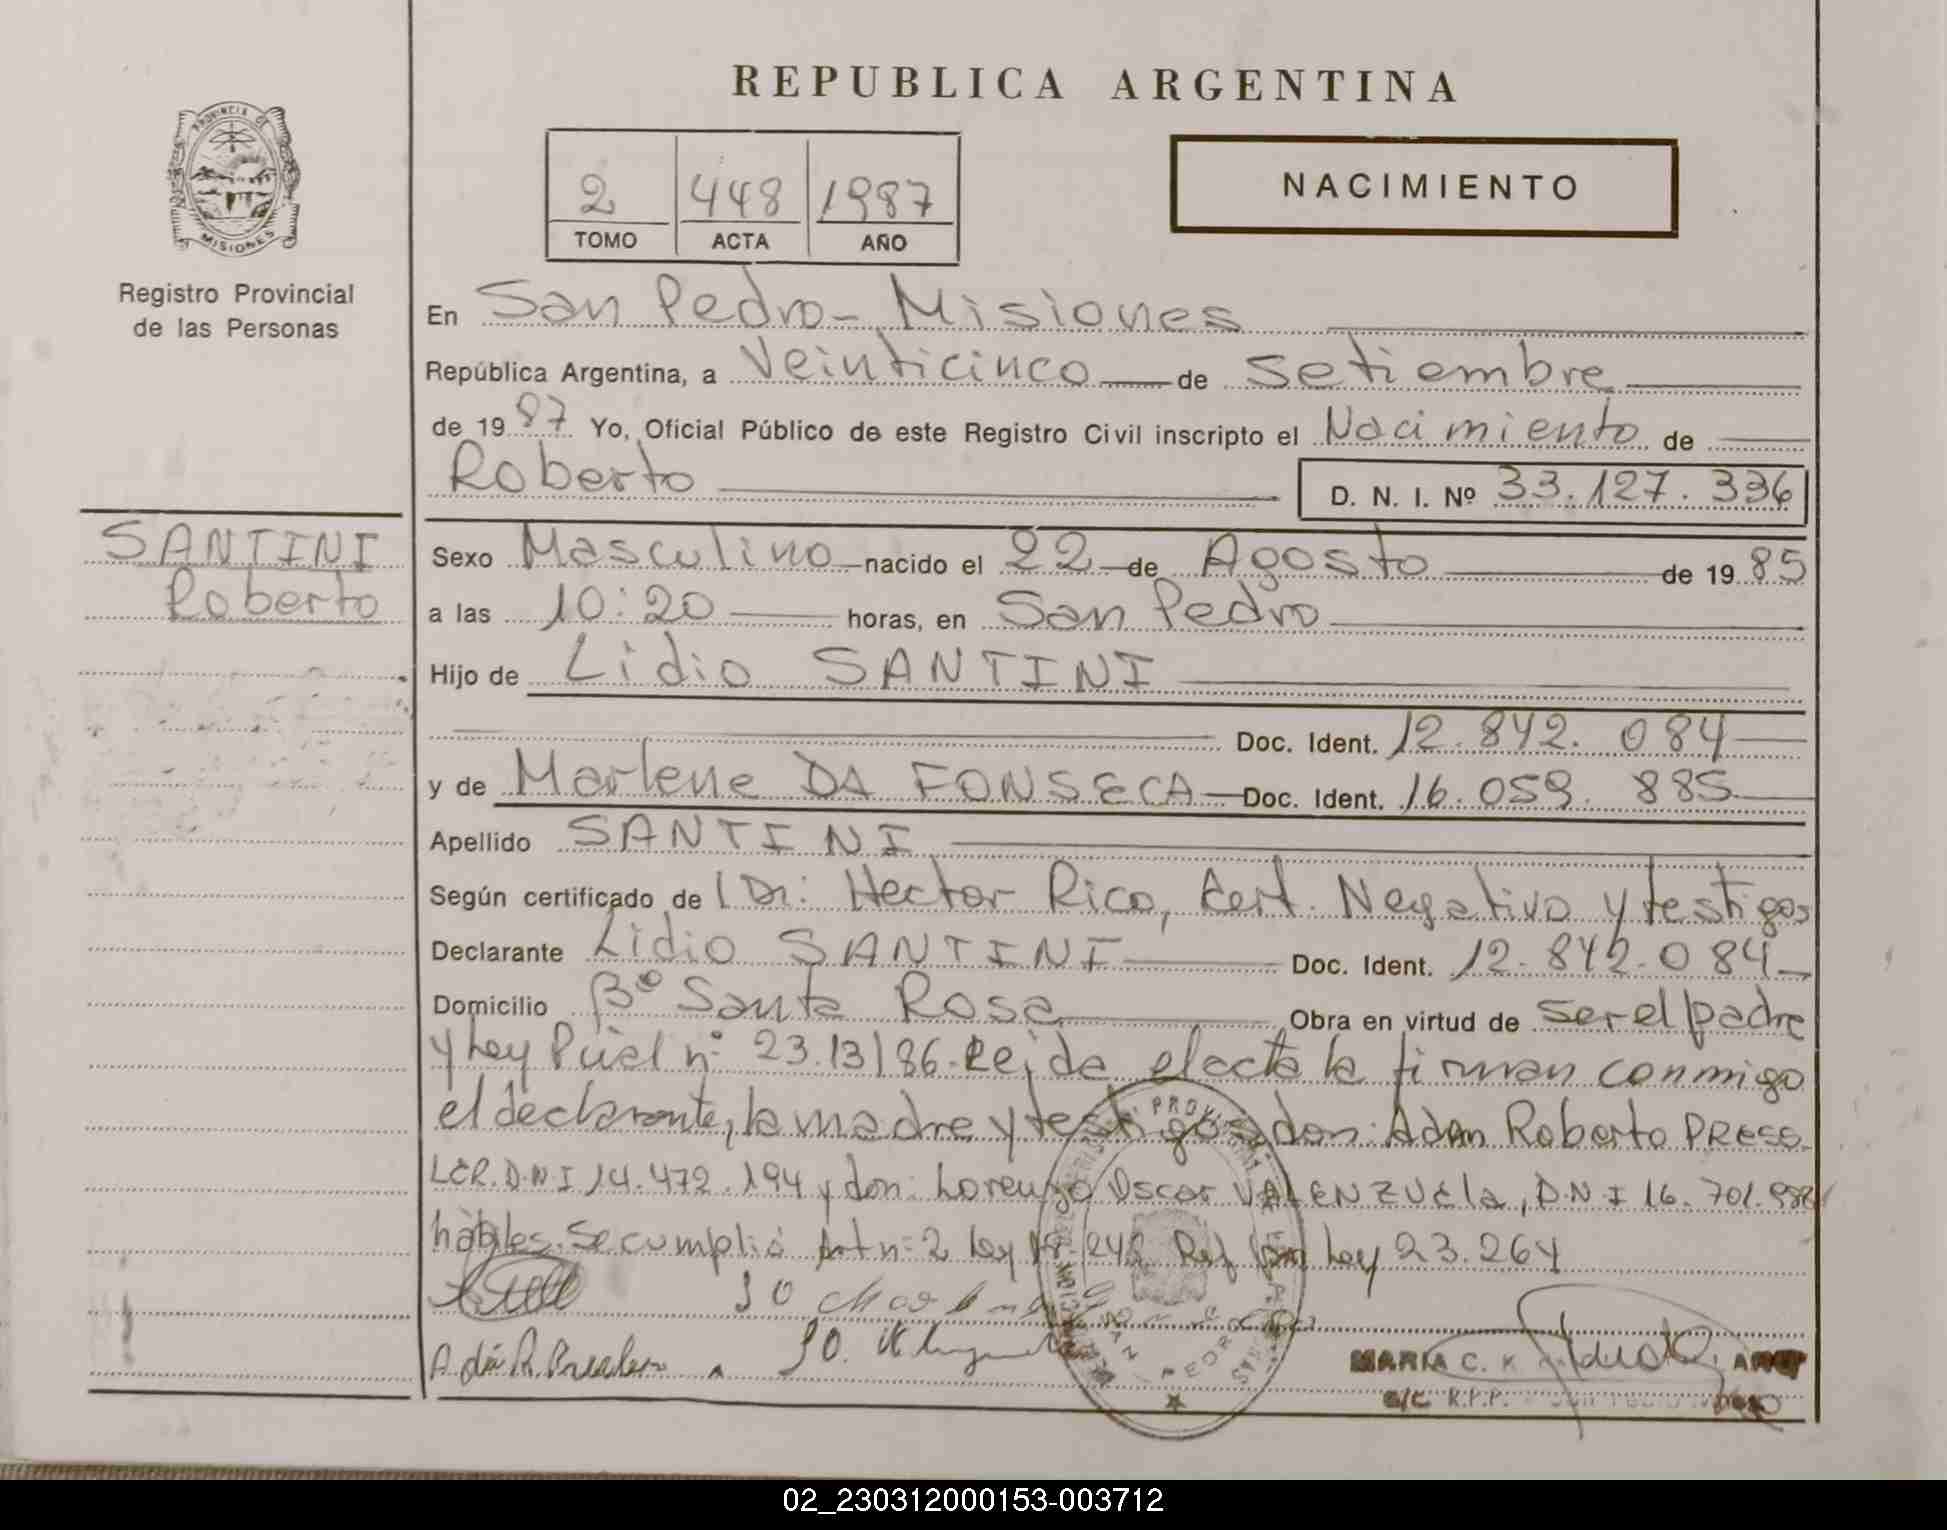 REPUBLICA ARGENTINA
PROVINCIA DE
MISIONES
Registro Provincial
de las Personas
2 448 1987
TOMO ACTA AÑO
NACIMIENTO
En San Pedro - Misiones
República Argentina, a Veinticinco de Setiembre
de 1987 Yo, Oficial Público de este Registro Civil inscripto el Nacimiento de
Roberto D. N. I. Nº 33.127.336
SANTINI
Roberto
Sexo Masculino nacido el 22 de Agosto de 1985
a las 10:20 horas, en San Pedro
Hijo de Lidio SANTINI
Doc. Ident. 12.842.084
y de Marlene DA FONSECA Doc. Ident. 16.059.885
Apellido SANTINI
Según certificado de l Dr: Hector Rico, Cert. Negativo y testigos
Declarante Lidio SANTINI Doc. Ident. 12.842.084
Domicilio Bº Santa Rosa Obra en virtud de ser el padre
y Ley Pcial nº 23.13/86. Leida el acta la firman conmigo
el declarante, la madre y testigos don: Adan Roberto PRESS-
LER. D.N.I 14.472.194 y don: Lorenzo Oscar VALENZUELA, D.N.I 16.701.
hábiles. Se cumplió Art nº 2 Ley 18.248 Ref por Ley 23.264
SAN PEDRO
MARIA C. K
S/C R.P.P.
02_230312000153-003712